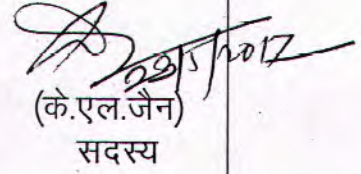 23/5/2017
(के.एल.जैन)
सदस्य